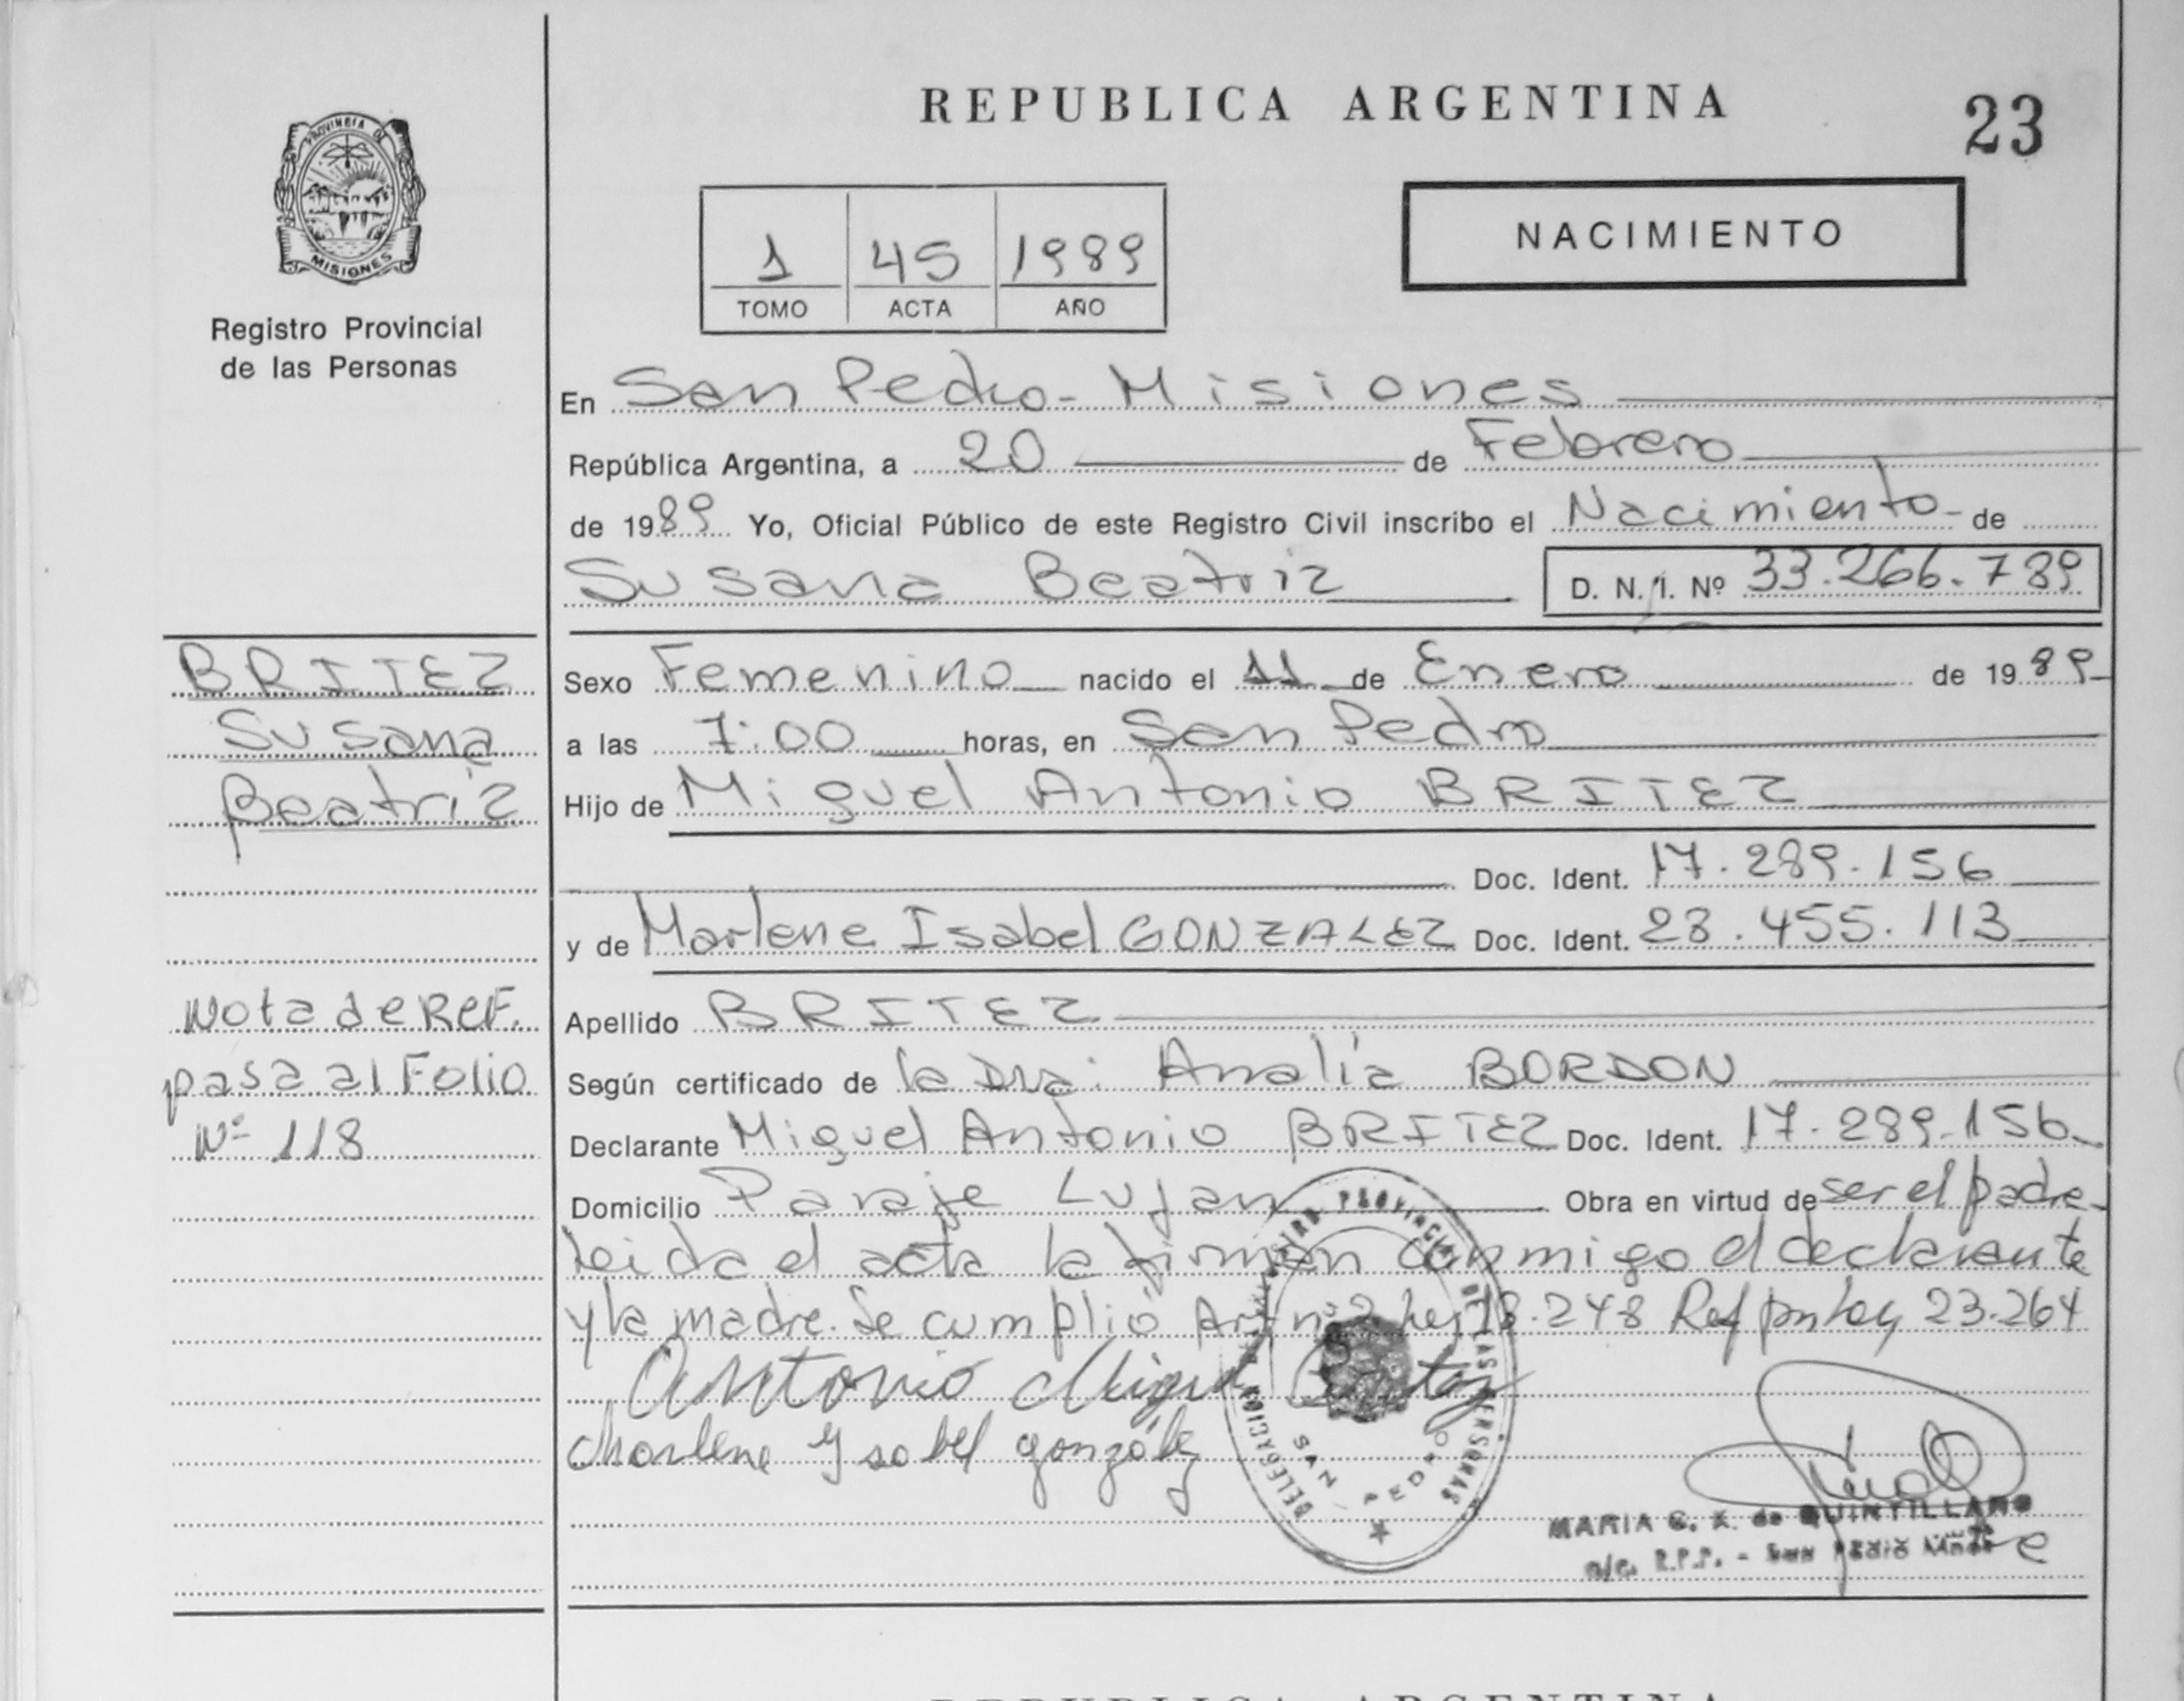 REPUBLICA ARGENTINA
23
PROVINCIA DE
MISIONES
Registro Provincial
de las Personas
1 45 1989
TOMO ACTA AÑO
NACIMIENTO
En San Pedro - Misiones
República Argentina, a 20 de Febrero
de 1989 Yo, Oficial Público de este Registro Civil inscribo el Nacimiento - de
Susana Beatriz D. N. I. Nº 33.266.789
BRITEZ
Susana
Beatriz
Nota de Ref.
pasa al Folio
Nº 118
Sexo Femenino nacido el 11 de Enero de 1989
a las 7:00 horas, en San Pedro
Hijo de Miguel Antonio BRITEZ
Doc. Ident. 17.289.156
y de Marlene Isabel GONZALEZ Doc. Ident. 28.455.113
Apellido BRITEZ
Según certificado de la Dra. Analía BORDON
Declarante Miguel Antonio BRITEZ Doc. Ident. 17.289.156
Domicilio Paraje Lujan Obra en virtud de ser el padre
leida el acta la firman conmigo el declarante
y la madre. Se cumplió Art nº 2 ley 18.248 Ref por ley 23.264
Antonio Miguel Britez
Marlene Ysabel gonzález
DELEGACION REGISTRO PROVINCIAL DE LAS PERSONAS
SAN PEDRO
MARIA de QUINTILLANO
a/c. R.P.P. - San Pedro Mnes
REPUBLICA ARGENTINA